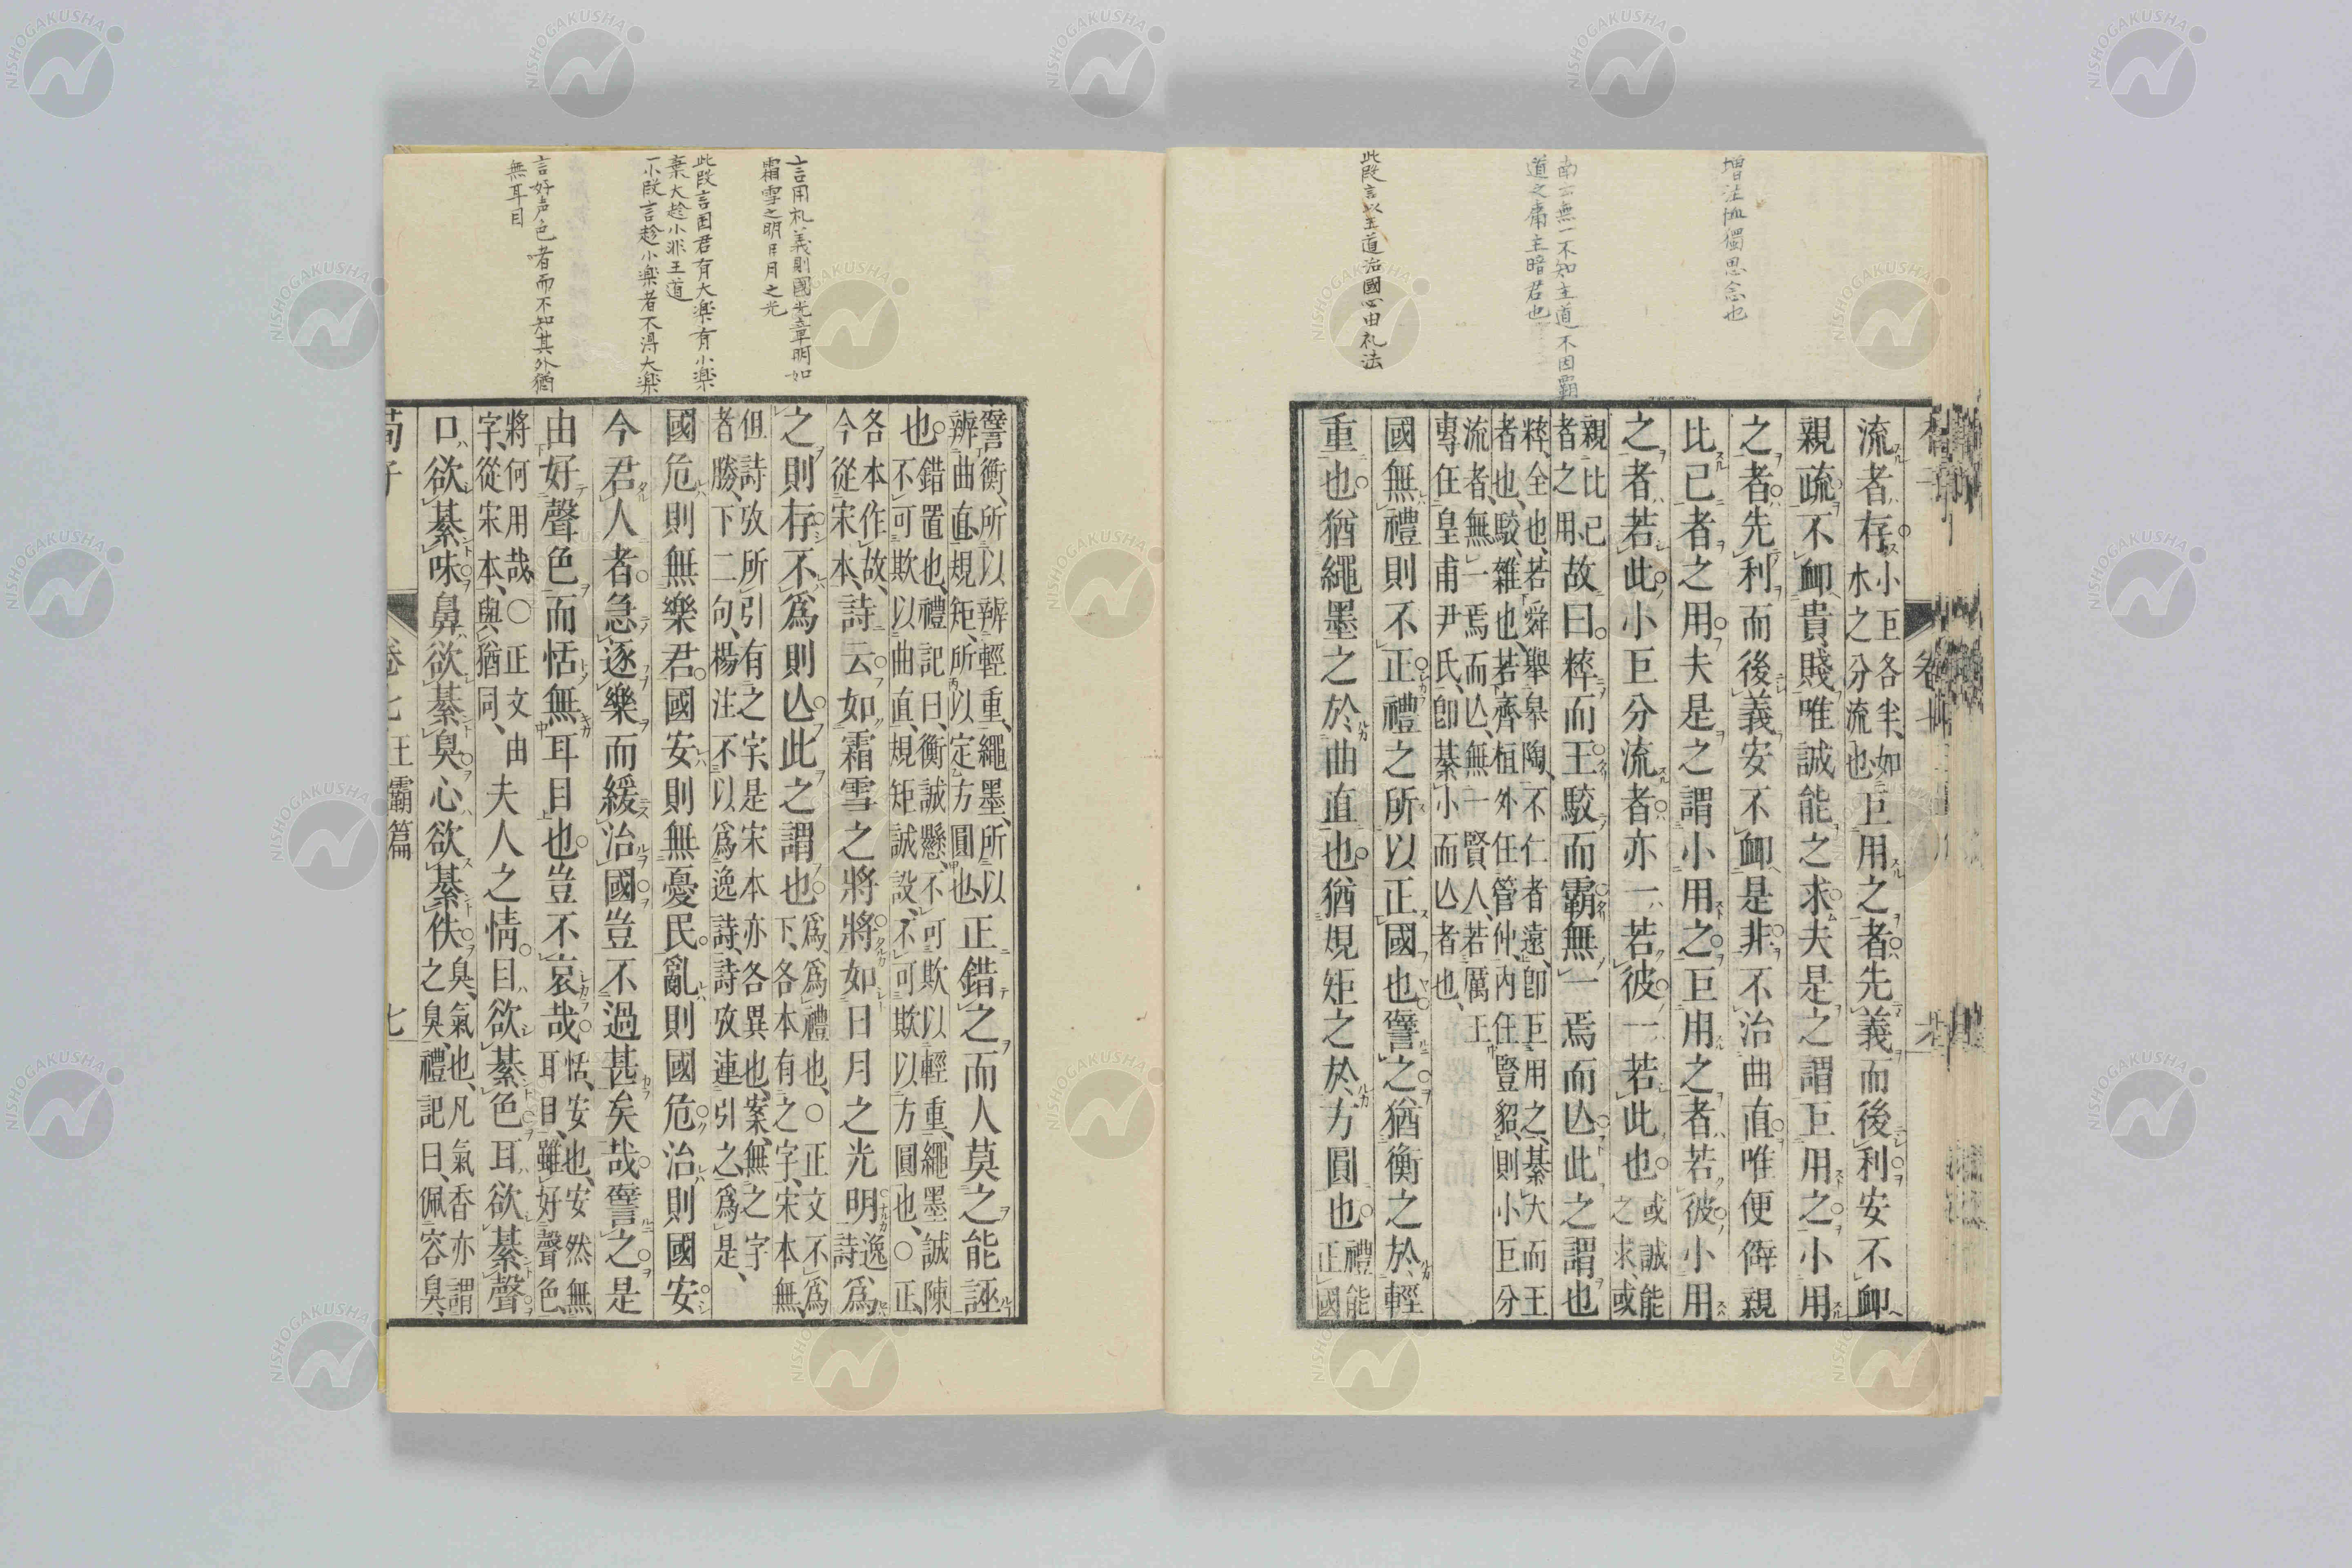 增注恤獨思念也
南云無一不知主道不因霸
道之庸主暗君也
此段言以王道治國必由礼法
流者存小巨各半、如
水之分流也巨用之者先義而後利安不卹
親疏不卹貴賤唯誠能之求夫是之謂巨用之小用
之者先利而後義安不卹是非不治曲直唯便僻親
比己者之用夫是之謂小用之巨用之者若彼小用
之者若此小巨分流者亦一若彼一若此也或誠能
之求、或
親比己
者之用、故曰粹而王駁而霸無一焉而亡此之謂也
粹、全也、若舜舉皐陶、不仁者遠、卽巨用之、綦大而王
者也、駁、雜也、若齊桓外任管仲、內任豎貂、則小巨分
流者、無一焉而亡、無一賢人、若厲王
專任皇甫尹氏、卽綦小而亡者也、
國無禮則不正禮之所以正國也譬之猶衡之於輕
重也猶繩墨之於曲直也猶規矩之於方圓也禮能
正國
言用礼義則國光章明如
霜雪之明日月之光
此段言国君有大楽有小楽
棄大趁小非王道
下段言趁小楽者不得大楽
言好声色者而不知其外猶
無耳目
譬衡、所以辨輕重、繩墨、所以
辨曲直、規矩、所以定方圓也、正錯之而人莫之能誣
也錯置也、禮記曰、衡誠懸、不可欺以輕重、繩墨誠陳
不可欺以曲直、規矩誠設、不可欺以方圓也、○正、
各本作故、
今從宋本、詩云如霜雪之將將如日月之光明逸
詩、爲
之則存不爲則亡此之謂也爲、爲禮也、○正文不爲
下、各本有之字、宋本無、
但詩攷所引有之字、是宋本亦各異也、案、無之字
者勝、下二句、楊注不以爲逸詩、詩攷連引之、爲是、
國危則無樂君國安則無憂民亂則國危治則國安
今君人者急逐樂而緩治國豈不過甚矣哉譬之是
由好聲色而恬無耳目也豈不哀哉恬、安也、安然無
耳目、雖好聲色、
將何用哉、○正文由
字、從宋本、與猶同、夫人之情目欲綦色耳欲綦聲
口欲綦味鼻欲綦臭心欲綦佚臭、氣也、凡氣香亦謂
之臭、禮記曰、佩容臭、
荀子 卷七王霸篇 七